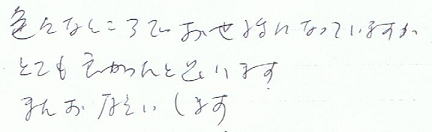 色んなところでおせわになっていますが
とても良かったと思います
またおねがいします